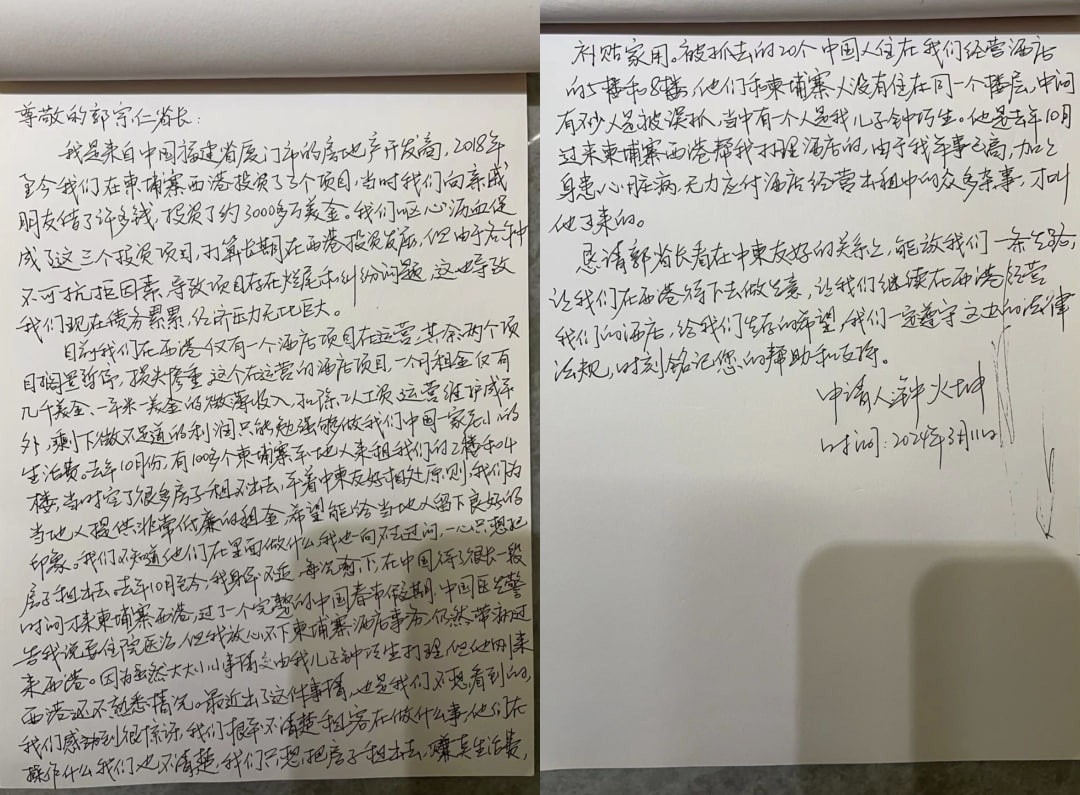 尊敬的郭宗仁省长：
我是来自中国福建省厦门市的房地产开发商，2018年
至今我们在柬埔寨西港投资了三个项目，当时我们向亲戚
朋友借了许多钱，投资了约3000多万美金。我们呕心沥血促
成了这三个投资项目，打算长期在西港投资发展，但由于各种
不可抗拒因素，导致项目存在烂尾和纠纷问题，这也导致
我们现在债务累累，经济压力无比巨大。
目前我们在西港仅有一个酒店项目在运营，其余两个项
目都是暂停，损失惨重。这个在运营的酒店项目，一个月租金仅有
几千美金、一平米一美金的微薄收入，扣除工人工资、运营维护成本
外，剩下微不足道的利润只能勉强够做我们中国一家老小的
生活费。去年10月份，有100多个柬埔寨本地人来租我们的2楼和4
楼，当时空了很多房子租不出去，本着中柬友好相处原则，我们为
当地人提供非常低廉的租金，希望能给当地人留下良好的
印象。我们不知道他们在里面做什么，我也一向不过问，一心只想把
房子租出去。去年10月至今，我身体不适，每况愈下，在中国待了很长一段
时间才来柬埔寨西港，过了一个完整的中国春节假期，中国医生警
告我说要住院医治，但我放心不下柬埔寨酒店事务，仍然带病过
来西港。因为虽然大大小小事情交由我儿子钟巧生打理，但他刚来
西港还不熟悉情况。最近出了这件事情，也是我们不想看到的，
我们感到很惊讶，我们根本不清楚租客在做什么事，他们在
操作什么我们也不清楚，我们只想把房子租出去，赚点生活费，
补贴家用。被抓去的20个中国人住在我们经营酒店
的5楼和8楼，他们和柬埔寨人没有住在同一个楼层，中间
有不少人是被误抓，当中有一个人是我儿子钟巧生。他是去年10月
过来柬埔寨西港帮我打理酒店的，由于我年事已高，加上
身患心脏病，无力应付酒店经营出租中的众多杂事，才叫
他过来的。
恳请郭省长看在中柬友好的关系上，能放我们一条生路，
让我们在西港待下去做生意，让我们继续在西港经营
我们的酒店，给我们生存的希望，我们一定遵守这边的法律
法规，时刻铭记您的帮助和支持。
申请人：钟火坤
时间：2024年3月11日